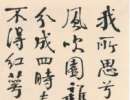 我所思兮
風吹園雜
分成四時
不得紅萼